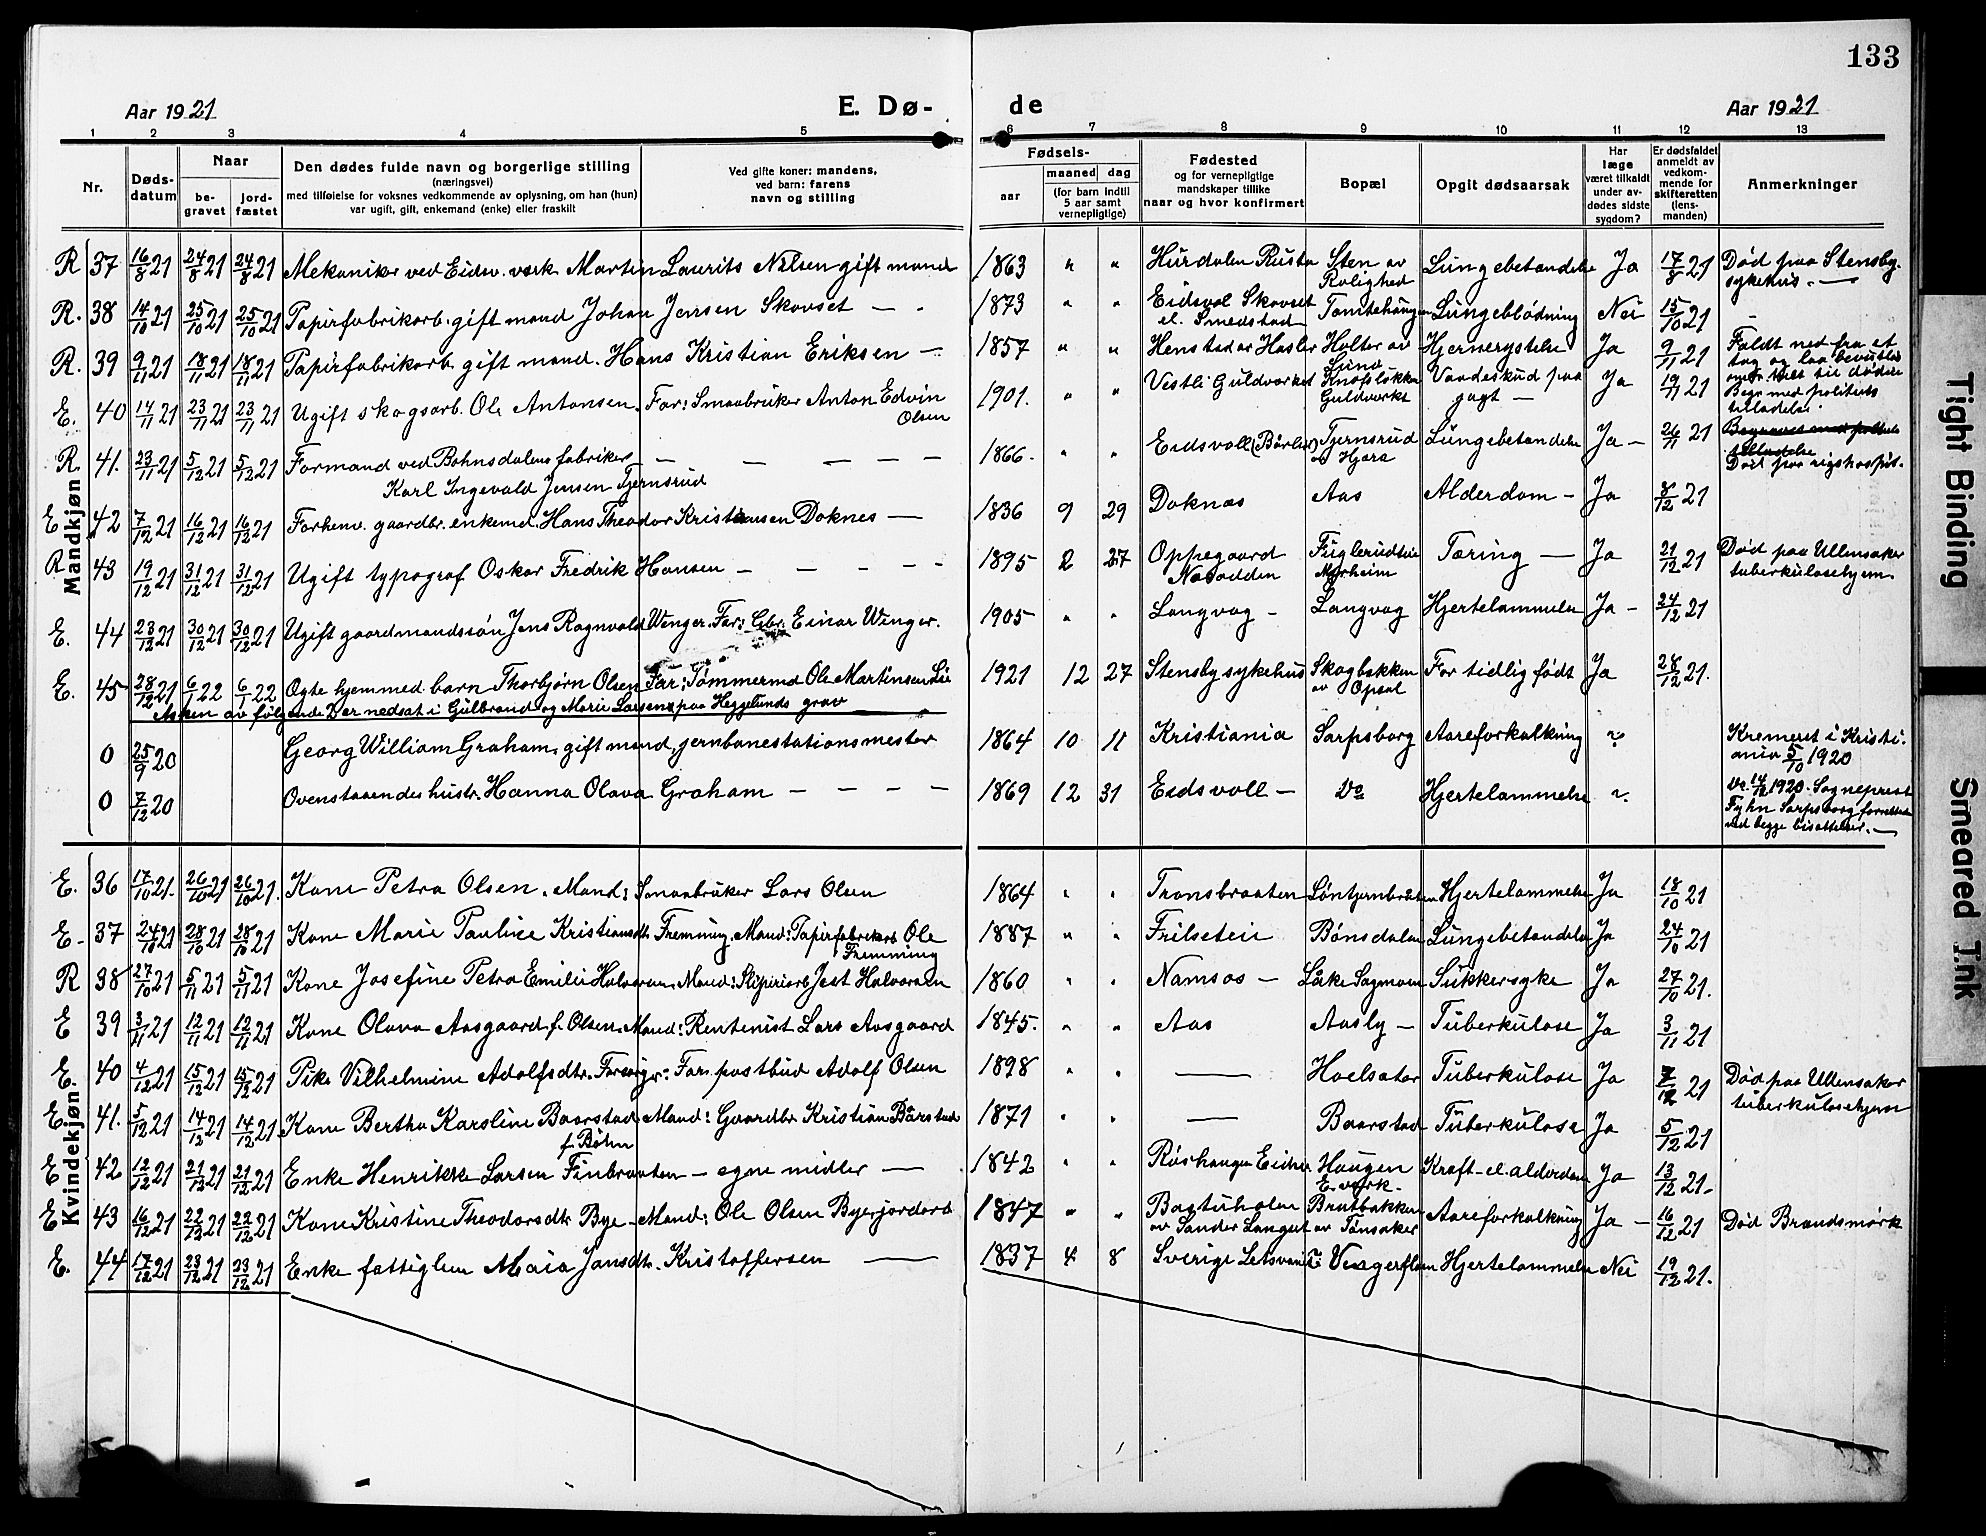 133
Aar 1921 E. Dø- de Aar 1921
1 2 3 4 5 6 7 8 9 10 11 12 13
Nr.
Døds-datum
Naar
be-gravet
jord-fæstet
Den dødes fulde navn og borgerlige stilling
(næringsvei)
med tilføielse for voksnes vedkommende av oplysning, om han (hun)
var ugift, gift, enkemand (enke) eller fraskilt
Ved gifte koner: mandens,
ved barn: farens
navn og stilling
Fødsels-
aar
maaned dag
(for barn indtil
5 aar samt
vernepligtige)
Fødested
og for vernepligtige
mandskaper tillike
naar og hvor konfirmert
Bopæl
Opgit dødsaarsak
Har
læge
været tilkaldt
under av-
dødes sidste
sygdom?
Er dødsfaldet
anmeldt av
vedkom-
mende for
skifteretten
(lens-
manden)
Anmerkninger
Mandkjøn
R 37 16/8 21 24/8 21 24/8 21 Mekaniker ved Eidsv. verk Martin Laurits Nilsen gift mand 1863 " " Hurdalen Rusta Sten av Rolighed Lungebetændelse Ja 17/8 21 Død paa Stensby sykehus. —
R. 38 14/10 21 25/10 21 25/10 21 Papirfabrikarb. gift mand Johan Jensen Skovset — 1873 " " Eidsvol Skovset el. Smedstad Tomtehaugen Lungeblødning Nei 15/10 21 —
R. 39 9/11 21 18/11 21 18/11 21 Papirfabrikarb. gift mand. Hans Kristian Eriksen — 1857 " " Henstad av Hasler Holter av Lund Hjernerystelse Ja 9/11 21 Faldt ned fra et tog og laa bevistløs til døden
E. 40 14/11 21 23/11 21 23/11 21 Ugift skogsarb. Ole Antonsen. Far: Smaabruker Anton Edvin Olsen 1901. " " Vestli Guldverket Knofsløkka Guldverket Vaadeskud paa jagt — Ja 19/11 21 Begr. med politiets tilladelse.
R. 41. 23/11 21 5/12 21 5/12 21 Formand ved Bøhnsdalens fabriker — — — — — Karl Ingevald Jensen Tjernsrud 1866. " " Eidsvoll (Bårli) Tjernsrud av Hjera Lungebetændelse Ja — 26/11 21 Død paa rigshospit.
E 42 7/12 21 16/12 21 16/12 21 Forhenv. gaardbr. enkemd. Hans Theodor Kristiansen Doknes — 1836 9 29 Doknæs Aas Alderdom — Ja 8/12 21
R 43 19/12 21 31/12 21 31/12 21 Ugift typograf Oskar Fredrik Hansen — — — — — 1895 2 27 Oppegaard Nesodden Fuglerudteie Mørheim Tæring — Ja 21/12 21 Død paa Ullensaker tuberkulosehjem
E. 44 23/12 21 30/12 21 30/12 21 Ugift gaardmandssøn Jens Ragnvald Wenger. Far: Gbr. Einar Wenger. 1905 " " Langvag — Langvag Hjertelammelse Ja — 24/12 21
E. 45 28/12 21 6/1 22 6/1 22 Ægte hjemmed. barn Thorbjørn Olsen Far: Tømmermd Ole Martinsen Lie 1921 12 27 Stensby sykehus Skogbakken av Opsal For tidlig født Ja 28/12 21.
Asken av følgende 2 er nedsat i Gulbrand og Marie Larsens paa Heggelunds grav
0 25/9 20 Georg William Graham, gift mand, jernbanestationsmester 1864 10 11 Kristiania Sarpsborg Aareforkalkning ? Kremeret i Kristiania 5/10 1920
0 7/12 20 Ovenstaaendes hustr. Hanna Olava Graham — — — — 1869 12 31 Eidsvoll — Do Hjertelammelse ? Do 14/12 1920. Sogneprest Fyhn Sarpsborg forrettet ved begge bisættelser. —
Kvindekjøn
E. 36 17/10 21. 26/10 21 26/10 21. Kone Petra Olsen. Mand: Smaabruker Lars Olsen 1864 " " Transbraaten Løntjernbråten Hjertelammelse Ja 18/10 21
E. 37 24/10 21 28/10 21 28/10 21 Kone Marie Pauline Kristiansdtr. Fremming. Mand: Papirfabrikarb. Ole Fremming 1887 " " Frilseteie Bønsdalen Lungebetændelse Ja 24/10 21
R 38 27/10 21 5/11 21 5/11 21 Kone Josefine Petra Emilie Halvorsen. Mand: Sliperiarb. Jest Halvorsen 1860 " " Namsos — Låke Sagmoen Sukkersyke Ja 27/10 21.
E 39 3/11 21 12/11 21 12/11 21 Kone Olava Aasgaard f. Olsen. Mand: Rentenist Lars Aasgaard 1845. " " Aas Aasly — Tuberkulose Ja 3/11 21
E. 40 4/12 21 15/12 21 15/12 21 Pike Vilhelmine Adolfsdtr. Far: postbud Adolf Olsen 1898 " " — Hoelsæter Tuberkulose Ja 7/12 21 Død paa Ullensaker tuberkulosehjem
E 41. 5/12 21 14/12 21 14/12 21 Kone Bertha Karoline Baarstad f. Bøhn Mand: Gaardbr. Kristian Bårstad 1871 " " — Baarstad Tuberkulose Ja 5/12 21
E 42 12/12 21 21/12 21 21/12 21 Enke Henrikke Larsen Finbraaten — egne midler — 1842 " " Røishaugen Haugen E. verk. Kræft el. alderdom Ja 13/12 21.
E 43 16/12 21 22/12 21 22/12 21 Kone Kristine Theodorsdtr Bye — Mand: Ole Olsen Bye jordarb 1847 " " Bastuholen av Sander Langset Bratbakken av Tønsaker Aareforkalkning Ja — 16/12 21 Død Brandsmørk
E. 44 17/12 21 23/12 21 23/12 21 Enke fattiglem Maia Jansdtr. Kristoffersen — 1837 4 8 Sverige Vengerfloen Hjertelammelse Nei 19/12 21.
Tight Binding
Smeared Ink